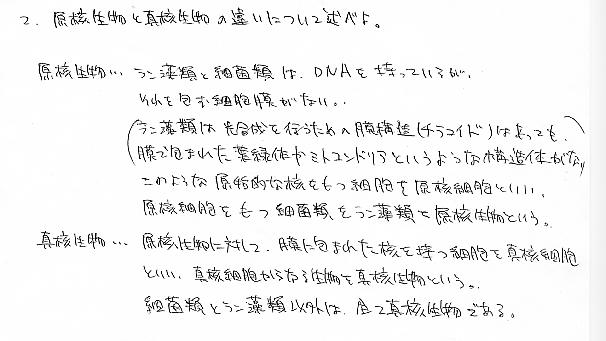 2. 原核生物と真核生物の違いについて述べよ。
原核生物… ラン藻類と細菌類は、DNAを持っているが、
それを包む細胞膜がない。
(ラン藻類は光合成を行うための膜構造(チラコイド)はあっても、
膜で包まれた葉緑体やミトコンドリアというような構造体がない)
このような原始的な核をもつ細胞を原核細胞といい、
原核細胞をもつ細菌類をラン藻類を原核生物という。
真核生物… 原核生物に対して、膜に包まれた核を持つ細胞を真核細胞
といい、真核細胞からなる生物を真核生物という。
細菌類とラン藻類以外は、全て真核生物である。